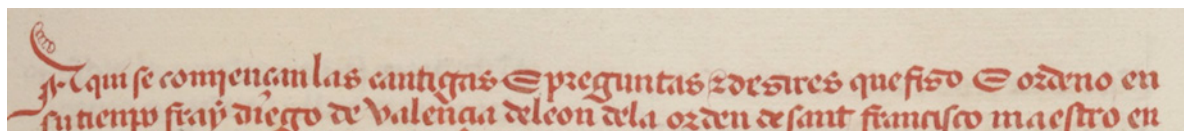 Aqui se comiençan las cantigas E preguntas & desires que fiso E ordeno en
su tienpo fray diego de valençia de leon dela orden de sant françisco maestro en